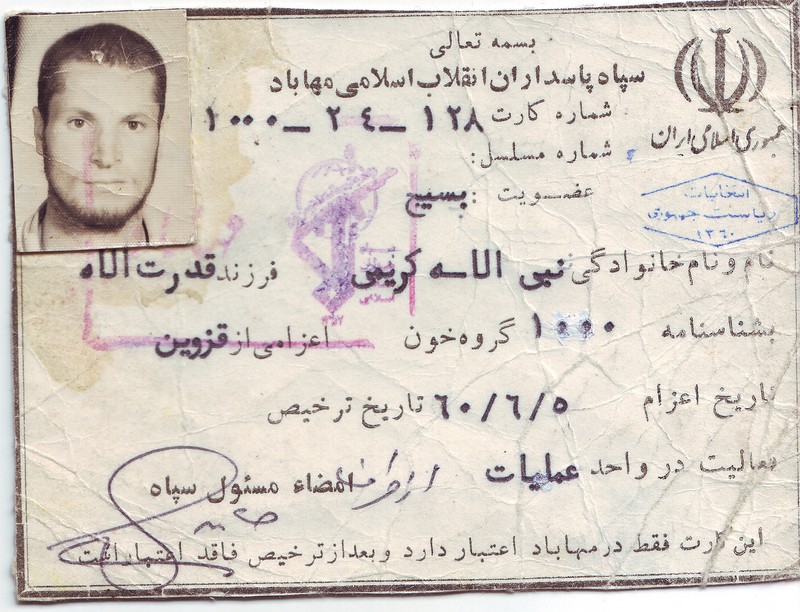 بسمه تعالی
سپاه پاسداران انقلاب اسلامی مهاباد
جمهوری اسلامی ایران
شماره کارت ۱۲۸ – ۲٤ – ۱۰۰۰
شماره مسلسل:
عضویت : بسیج
انتخابات
ریاست جمهوری
۱۳٦۰
نام و نام خانوادگی نبی الاسه کریمی فرزند قدرت الاه
بشناسنامه ۱۰۰۰ گروه خون اعزامی از قزوین
تاریخ اعزام ٦۰/٦/۵ تاریخ ترخیص
فعالیت در واحد عملیات امضاء مسئول سپاه
این کارت فقط در مهاباد اعتبار دارد و بعد از ترخیص فاقد اعتبار است